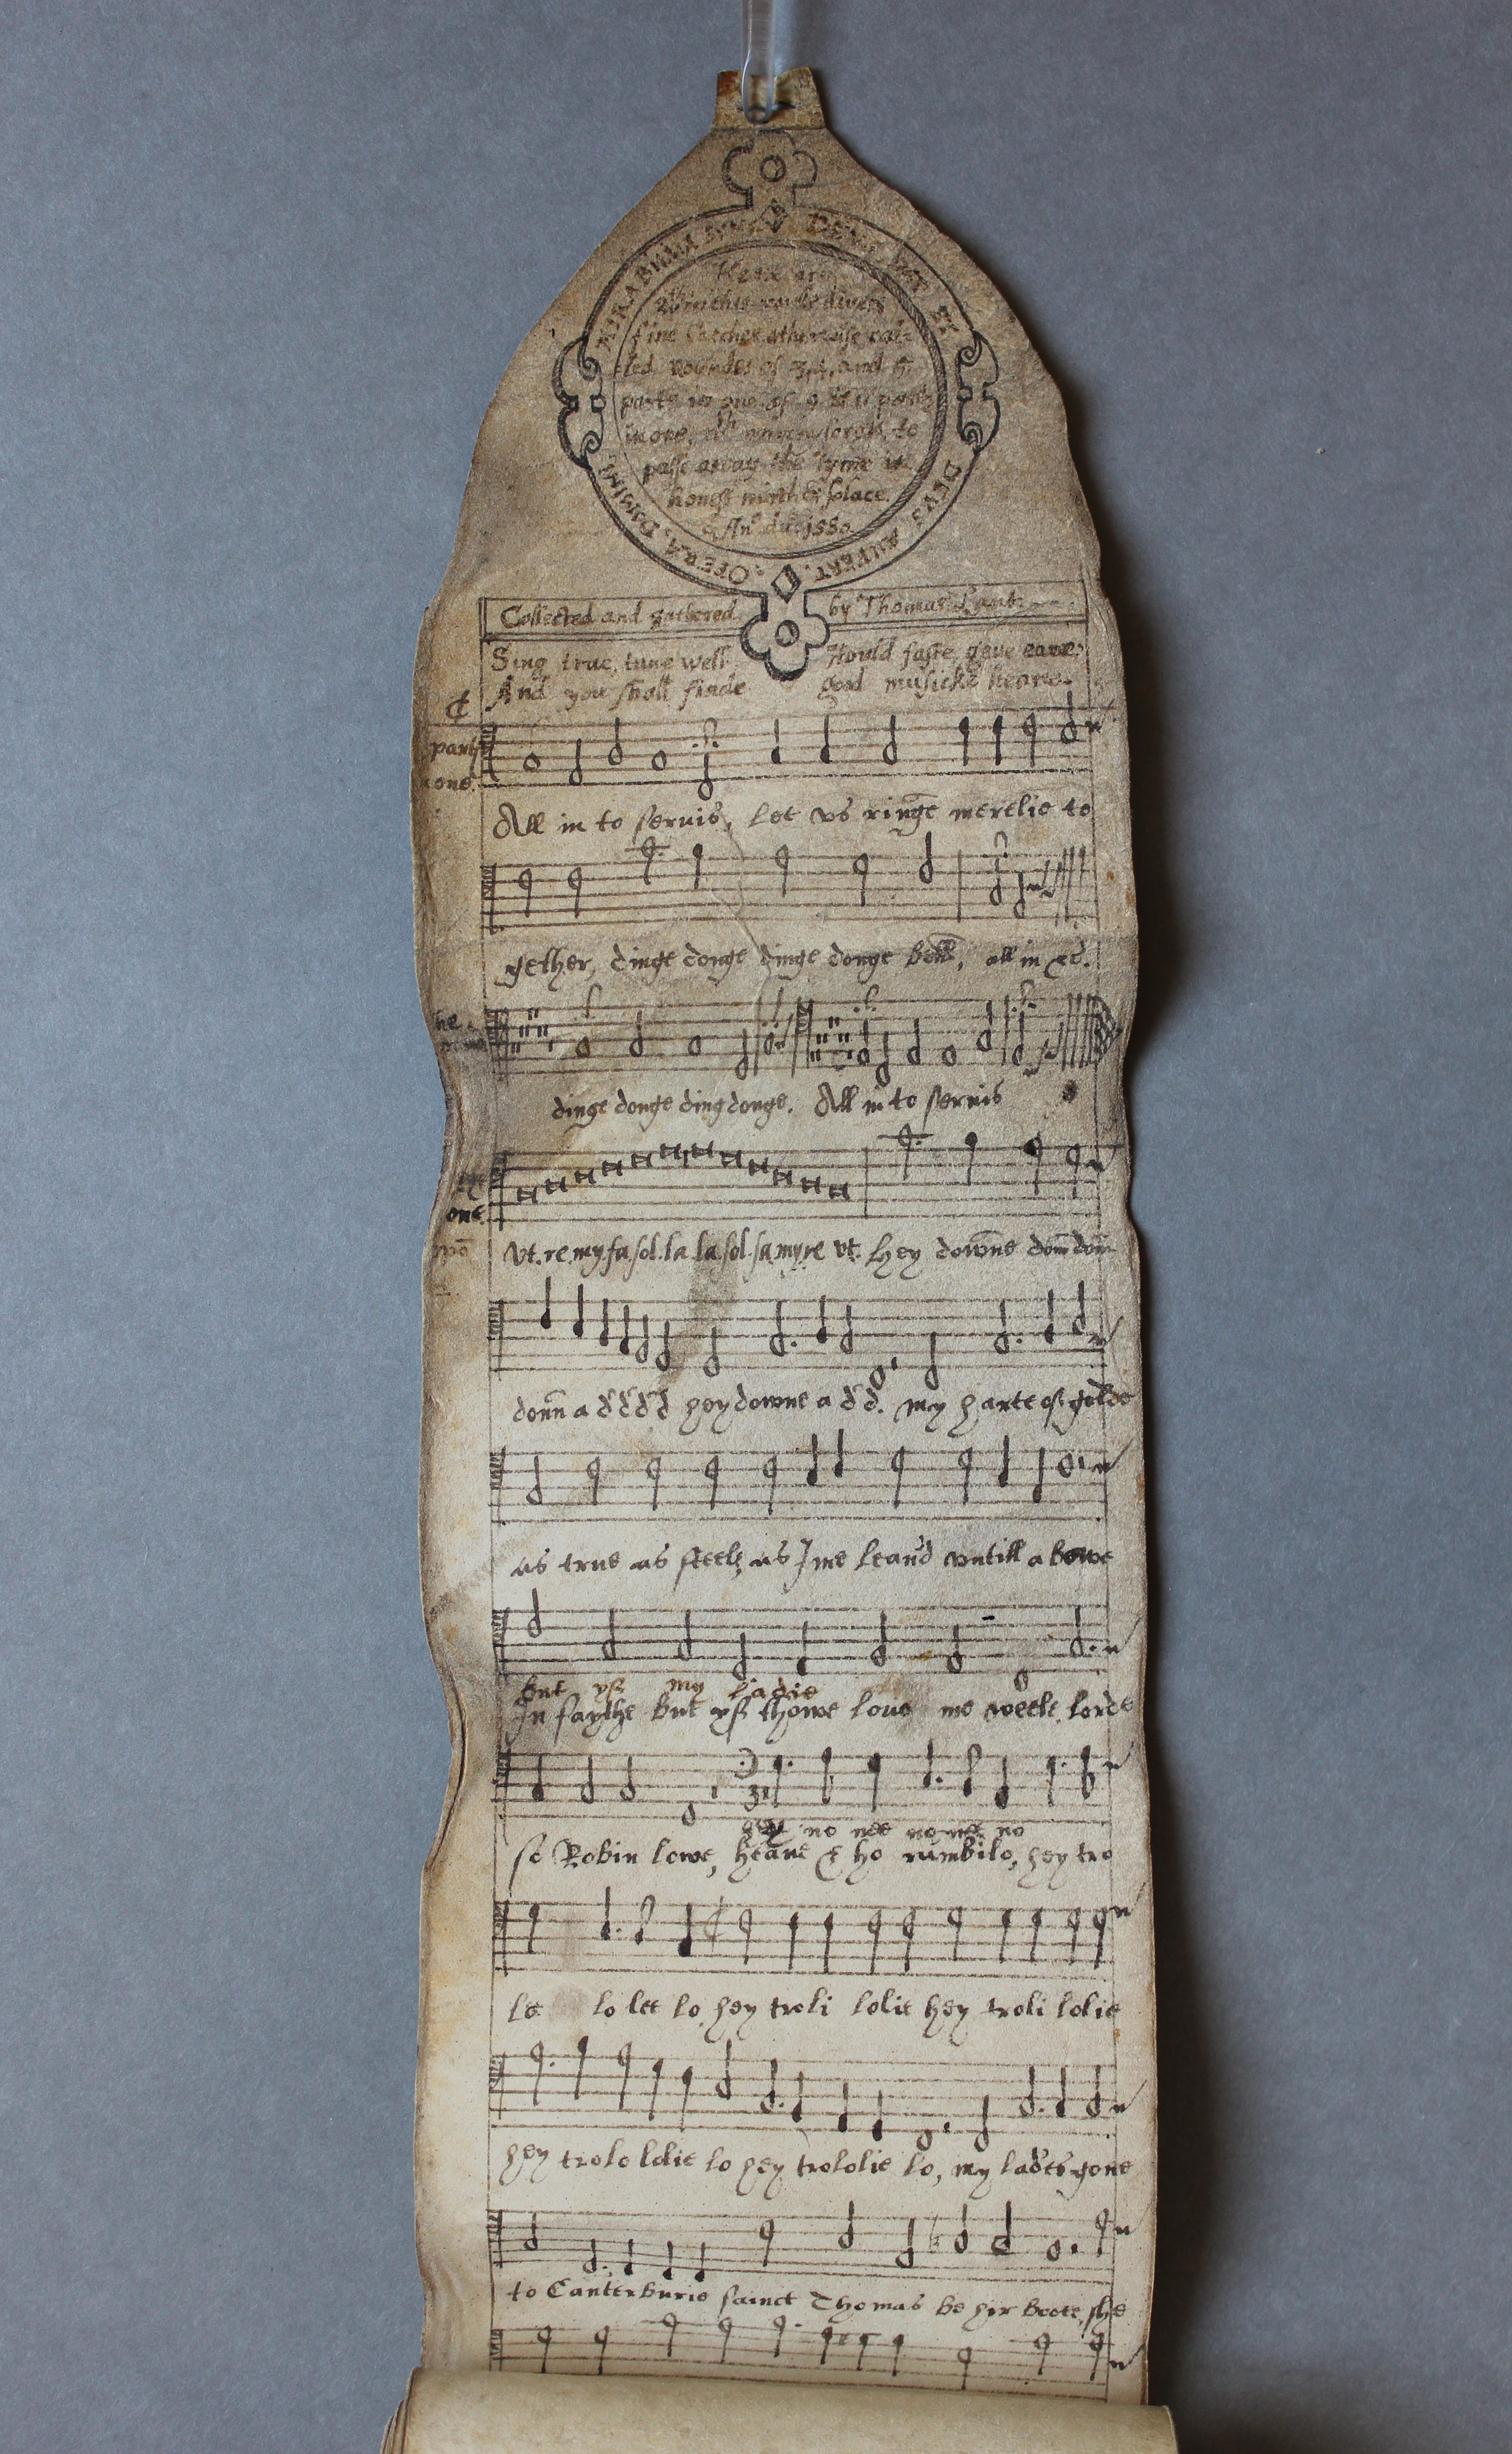 MIRABILIA SUNT
OPERA, DOMINI,
DEUS DAT ET
DEUS AUFERT.
Here are
within this rowle divers
fine catches, otherwise cal-
led roundes of 3, 4, and 5
parts in one, of 9 & 11 parts
in one, wth songs, to
passe away the tyme in
honest mirth & solace.
Ano. dni. 1580
Collected and gathered by Thomas Lant
Sing true, tune well Hould faste, geve eare,
And you shall finde good musicke heare.
parts
one.
All in to seruis, Let vs ringe merelie to
gether, dinge donge dinge donge bell, all in &c.
he
dinge donge dingdonge. All in to seruis
one.
Vt. re. my. fa. sol. la la. sol. fa. my. re vt. hey downe dom dom
donn a d d d d hey downe a d d. my harte of golde
as true as steele, as I me lean'd vntill a bowe
but yf my Ladie
In faythe but yf thowe loue me weele, lorde
hey no nee no nee no
so Robin lowe, heaue & ho rumbilo, hey tro
le lo lee lo hey troli lolie hey troli lolie
hey trolo lolie lo hey trololie lo, my lad'es gone
to Canterburie sainct Thomas be hir boote, she